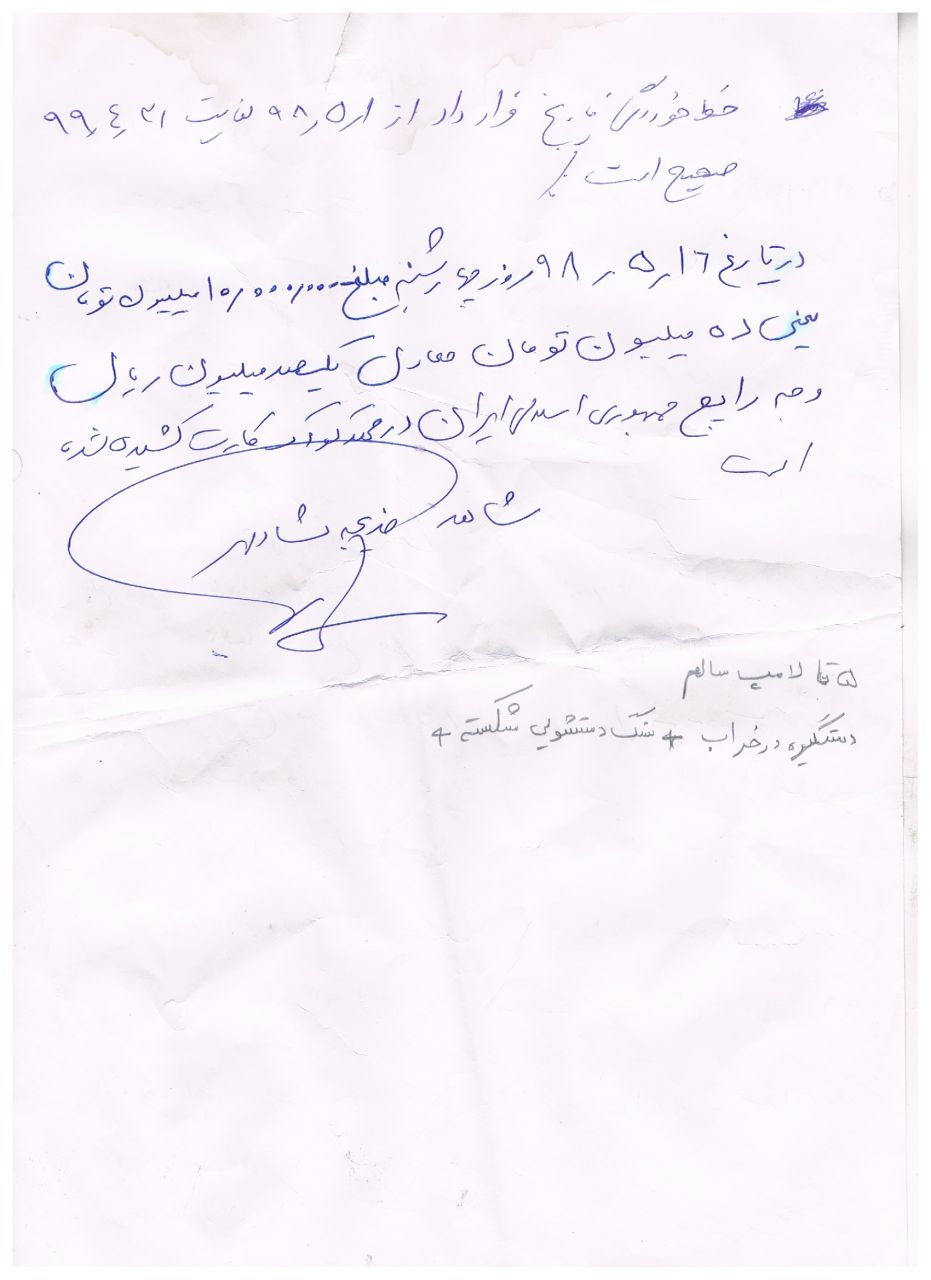 خط خوردگی تاریخ قرارداد از ۹۸٫۵٫۱ لغایت ۹۹٫۴٫۳۱
صحیح است ٪
در تارخ ۹۸٫۵٫۱۶ روز چهارشنبه مبلغ ۱۰٫۰۰۰٫۰۰۰ میلیون تومان
یعنی ده میلیون تومان معادل یکصد میلیون ریال
وجه رایج جمهوری اسلامی ایران در کارت کشیده شده
است
شاهد خدیجه
۵ تا لامپ سالم
دستگیره در خراب + سنگ دستشویی شکسته +